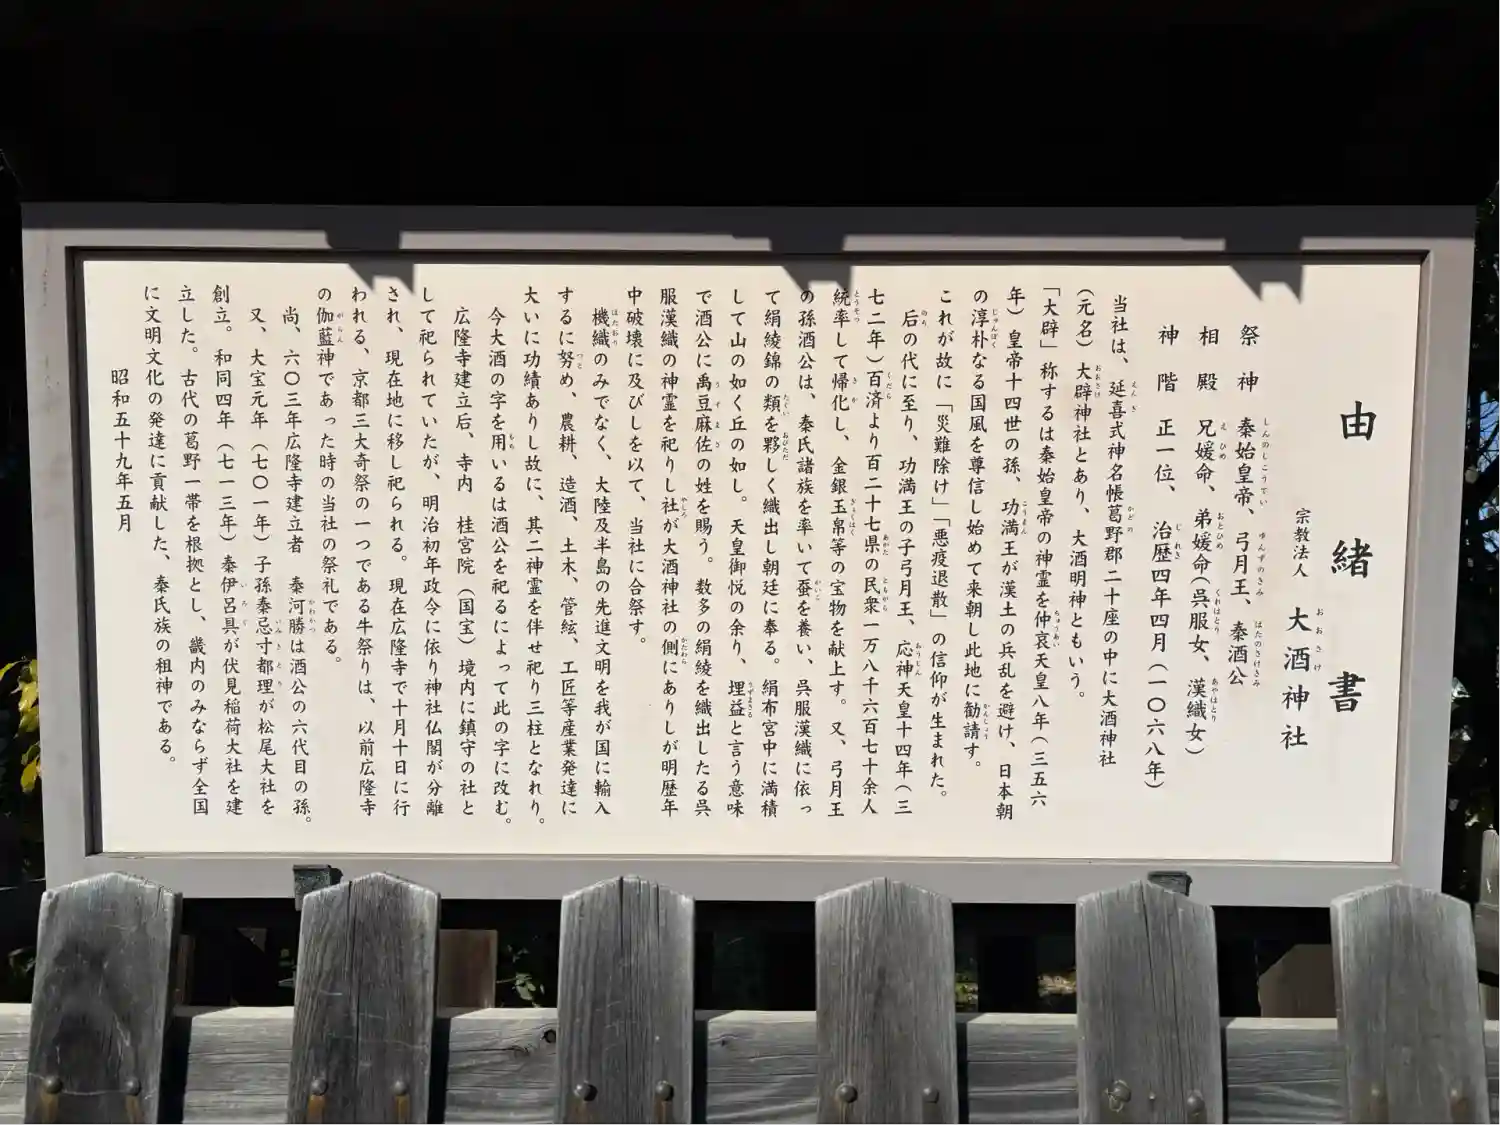 由緒書
宗教法人 大酒神社
祭神 秦始皇帝、弓月王、秦酒公
相殿 兄媛命、弟媛命(呉服女、漢織女)
神階 正一位、治歴四年四月(一〇六八年)
当社は、延喜式神名帳葛野郡二十座の中に大酒神社
(元名)大辟神社とあり、大酒明神ともいう。
「大辟」称するは秦始皇帝の神霊を仲哀天皇八年(三五六
年)皇帝十四世の孫、功満王が漢土の兵乱を避け、日本朝
の淳朴なる国風を尊信し始めて来朝し此地に勧請す。
これが故に「災難除け」「悪疫退散」の信仰が生まれた。
后の代に至り、功満王の子弓月王、応神天皇十四年(三
七二年)百済より百二十七県の民衆一万八千六百七十余人
統率して帰化し、金銀玉帛等の宝物を献上す。又、弓月王
の孫酒公は、秦氏諸族を率いて蚕を養い、呉服漢織に依っ
て絹綾錦の類を夥しく織出し朝廷に奉る。絹布宮中に満積
して山の如く丘の如し。天皇御悦の余り、埋益と言う意味
で酒公に禹豆麻佐の姓を賜う。数多の絹綾を織出したる呉
服漢織の神霊を祀りし社が大酒神社の側にありしが明歴年
中破壊に及びしを以て、当社に合祭す。
機織のみでなく、大陸及半島の先進文明を我が国に輸入
するに努め、農耕、造酒、土木、管絃、工匠等産業発達に
大いに功績ありし故に、其二神霊を伴せ祀り三柱となれり。
今大酒の字を用いるは酒公を祀るによって此の字に改む。
広隆寺建立后、寺内 桂宮院(国宝)境内に鎮守の社と
して祀られていたが、明治初年政令に依り神社仏閣が分離
され、現在地に移し祀られる。現在広隆寺で十月十日に行
われる、京都三大奇祭の一つである牛祭りは、以前広隆寺
の伽藍神であった時の当社の祭礼である。
尚、六〇三年広隆寺建立者 秦河勝は酒公の六代目の孫。
又、大宝元年(七〇一年)子孫秦忌寸都理が松尾大社を
創立。和同四年(七一三年)秦伊呂具が伏見稲荷大社を建
立した。古代の葛野一帯を根拠とし、畿内のみならず全国
に文明文化の発達に貢献した、秦氏族の祖神である。
昭和五十九年五月